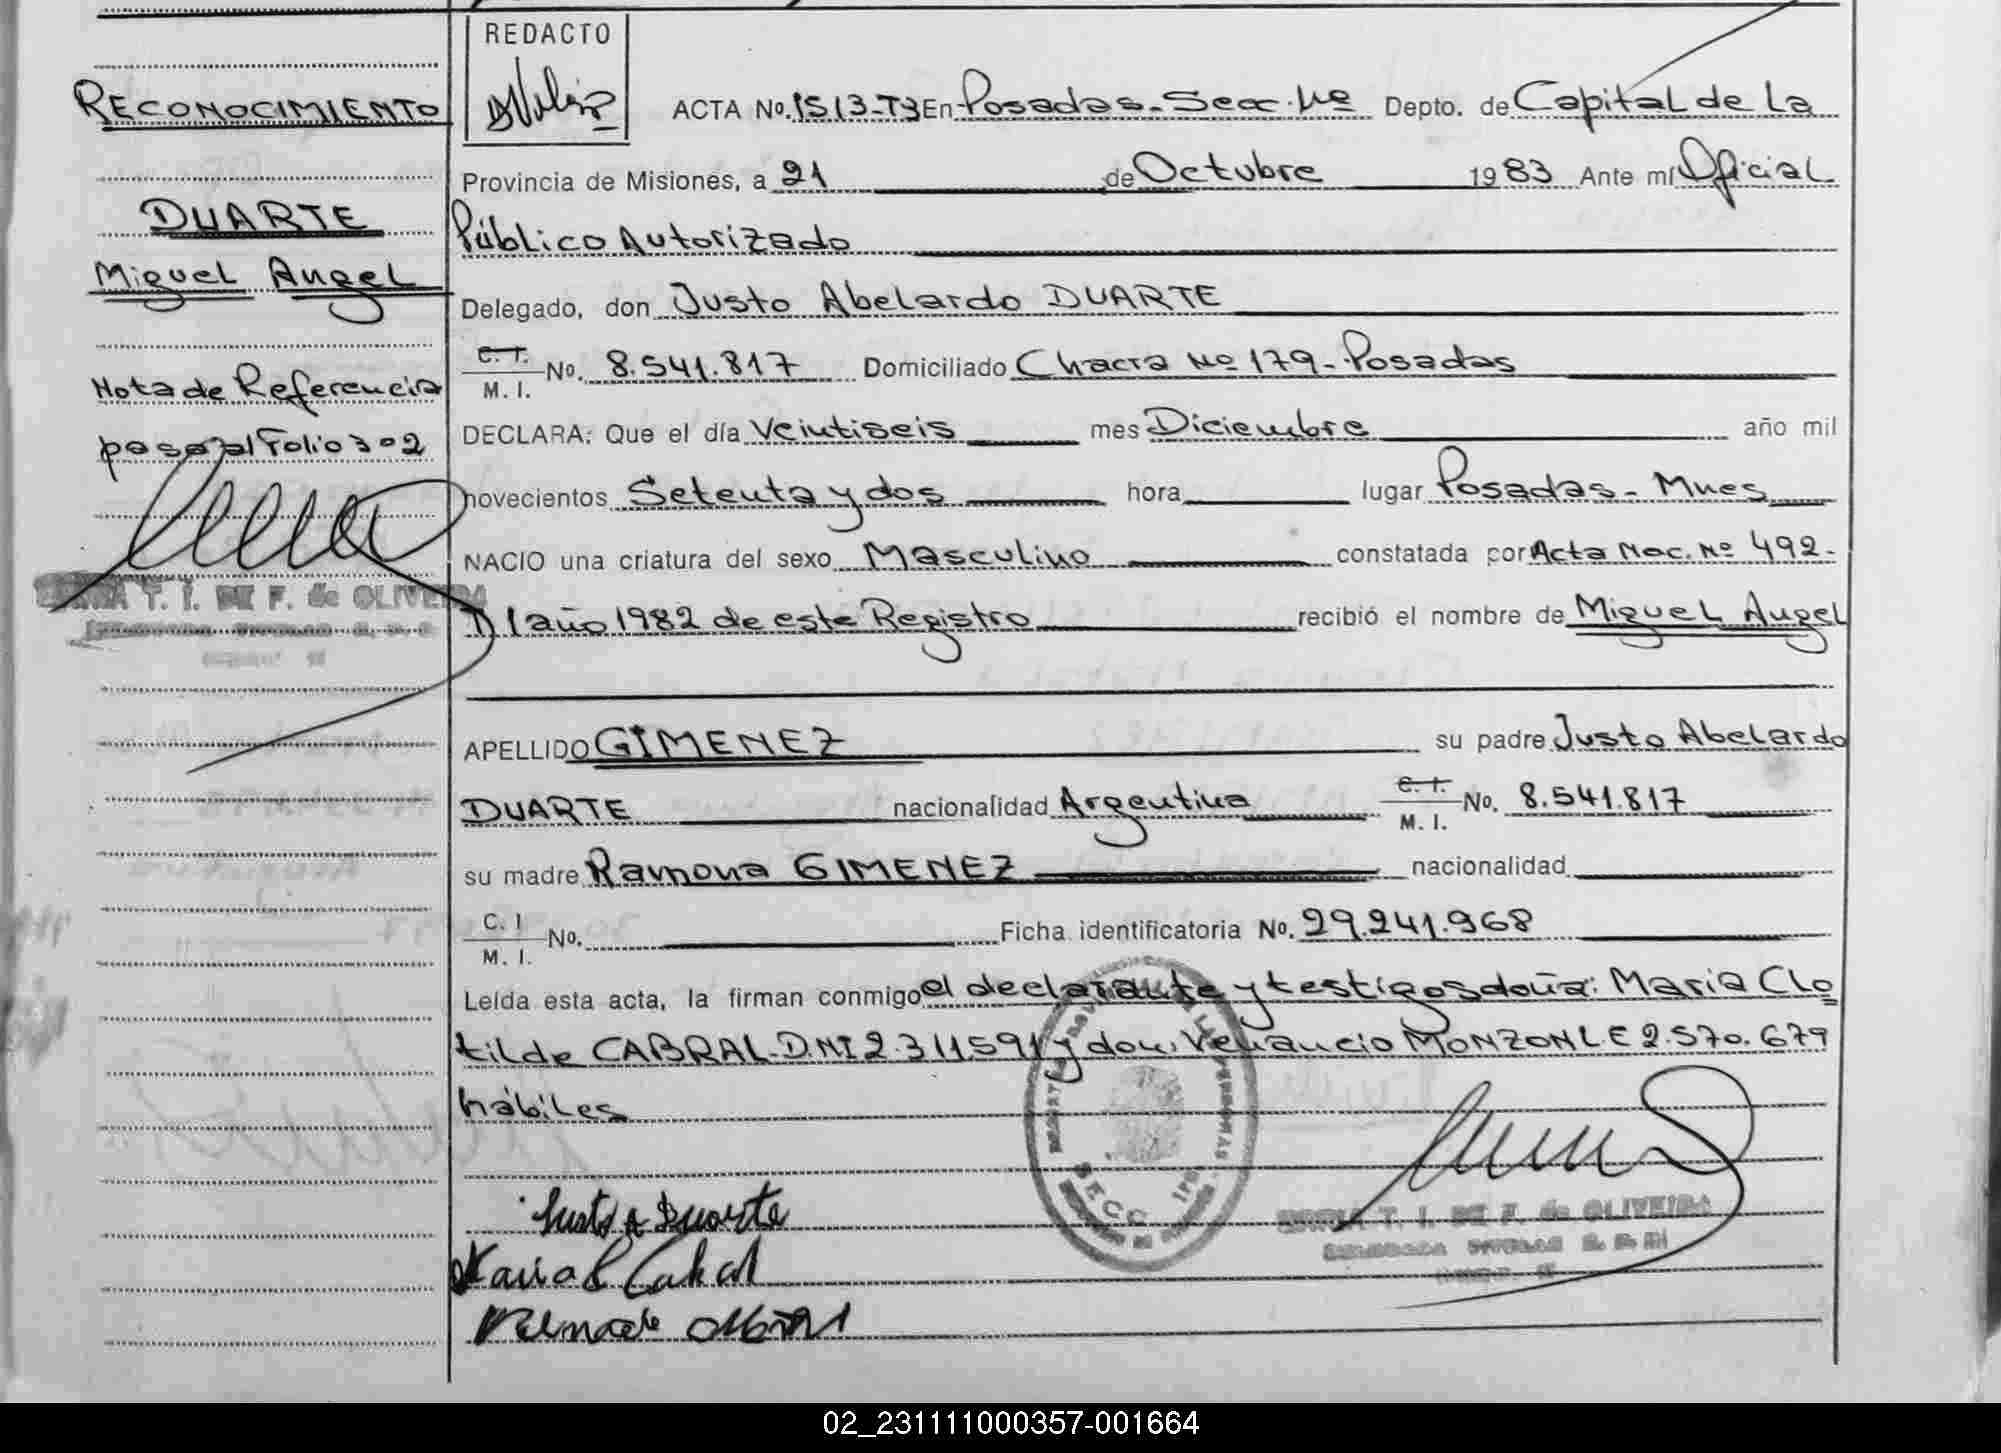 REDACTO
RECONOCIMIENTO
ACTA No. 1513-T3 En Posadas-Secc. 1ra Depto. de Capital de la
Provincia de Misiones, a 21 de Octubre 1983 Ante mí Oficial
DUARTE
Público Autorizado
Miguel Angel
Delegado, don Justo Abelardo DUARTE
C. I.
M. I. No. 8.541.817 Domiciliado Chacra Nº 179-Posadas
Nota de Referencia
pasa al Folio 302
DECLARA: Que el día Veintiseis mes Diciembre año mil
novecientos Setenta y dos hora lugar Posadas- Mnes
NACIO una criatura del sexo Masculino constatada por Acta Nac. Nº 492-
T. I. DE F. de OLIVEIRA
D/año 1982 de este Registro recibió el nombre de Miguel Angel
APELLIDO GIMENEZ su padre Justo Abelardo
DUARTE nacionalidad Argentina C. I. M. I. No. 8.541.817
su madre Ramona GIMENEZ nacionalidad
C. I
M. I. No. Ficha identificatoria No. 29.241.968
Leída esta acta, la firman conmigo el declarante y testigos doña: Maria Clo
tilde CABRAL-D.NI 2.311591 y don. Venancio MONZON L.E 2.570.679
hábiles
SECC
Justo A Duarte
T. I. DE F. de OLIVEIRA
Maria C Cabral
02_231111000357-001664